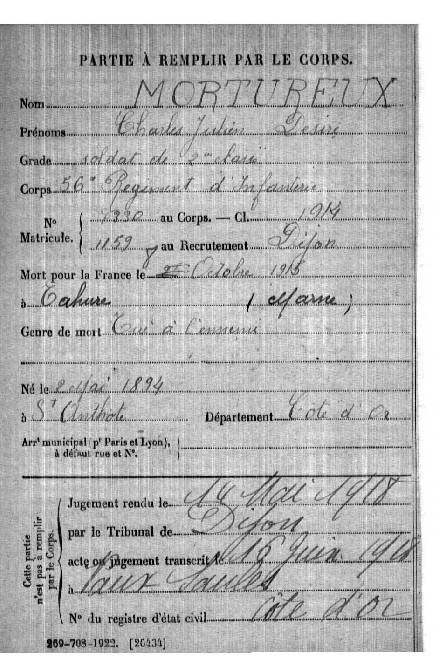 PARTIE À REMPLIR PAR LE CORPS.
Nom MORTUREUX
Prénoms Charles Julien Désiré
Grade soldat de 2me classe
Corps 56e Régiment d'Infanterie
No 7330 au Corps. — Cl. 1914
Matricule. 1159 au Recrutement Dijon
Mort pour la France le Octobre 1915
à Tahure (Marne)
Genre de mort Tué à l'ennemi
Né le 2 Mai 1894
à St Anthote Département Côte d'Or
Arrt municipal (pr Paris et Lyon),
à défaut rue et No.
Cette partie
n'est pas à remplir
par le Corps.
Jugement rendu le 14 Mai 1918
par le Tribunal de Dijon
acte ou jugement transcrit le 15 Juin 1918
à Vaux Saules
Côte d'Or
No du registre d'état civil
269-708-1922. [26434]